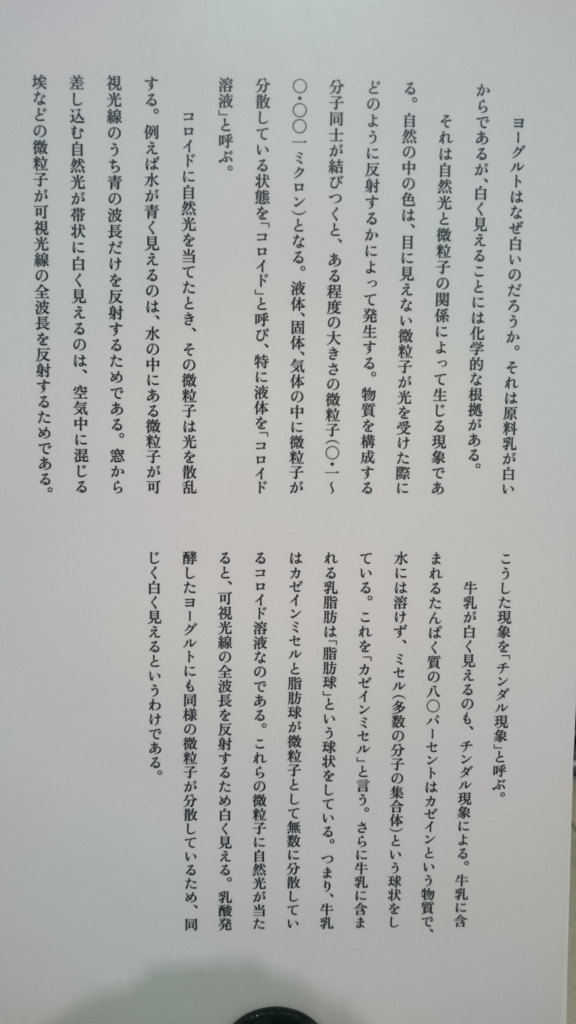 ヨーグルトはなぜ白いのだろうか。それは原料乳が白い
からであるが、白く見えることには化学的な根拠がある。
それは自然光と微粒子の関係によって生じる現象であ
る。自然の中の色は、目に見えない微粒子が光を受けた際に
どのように反射するかによって発生する。物質を構成する
分子同士が結びつくと、ある程度の大きさの微粒子(〇・一〜
〇・〇〇一ミクロン)となる。液体、固体、気体の中に微粒子が
分散している状態を「コロイド」と呼び、特に液体を「コロイド
溶液」と呼ぶ。
コロイドに自然光を当てたとき、その微粒子は光を散乱
する。例えば水が青く見えるのは、水の中にある微粒子が可
視光線のうち青の波長だけを反射するためである。窓から
差し込む自然光が帯状に白く見えるのは、空気中に混じる
埃などの微粒子が可視光線の全波長を反射するためである。
こうした現象を「チンダル現象」と呼ぶ。
牛乳が白く見えるのも、チンダル現象による。牛乳に含
まれるたんぱく質の八〇パーセントはカゼインという物質で、
水には溶けず、ミセル(多数の分子の集合体)という球状をし
ている。これを「カゼインミセル」と言う。さらに牛乳に含ま
れる乳脂肪は「脂肪球」という球状をしている。つまり、牛乳
はカゼインミセルと脂肪球が微粒子として無数に分散してい
るコロイド溶液なのである。これらの微粒子に自然光が当た
ると、可視光線の全波長を反射するため白く見える。乳酸発
酵したヨーグルトにも同様の微粒子が分散しているため、同
じく白く見えるというわけである。